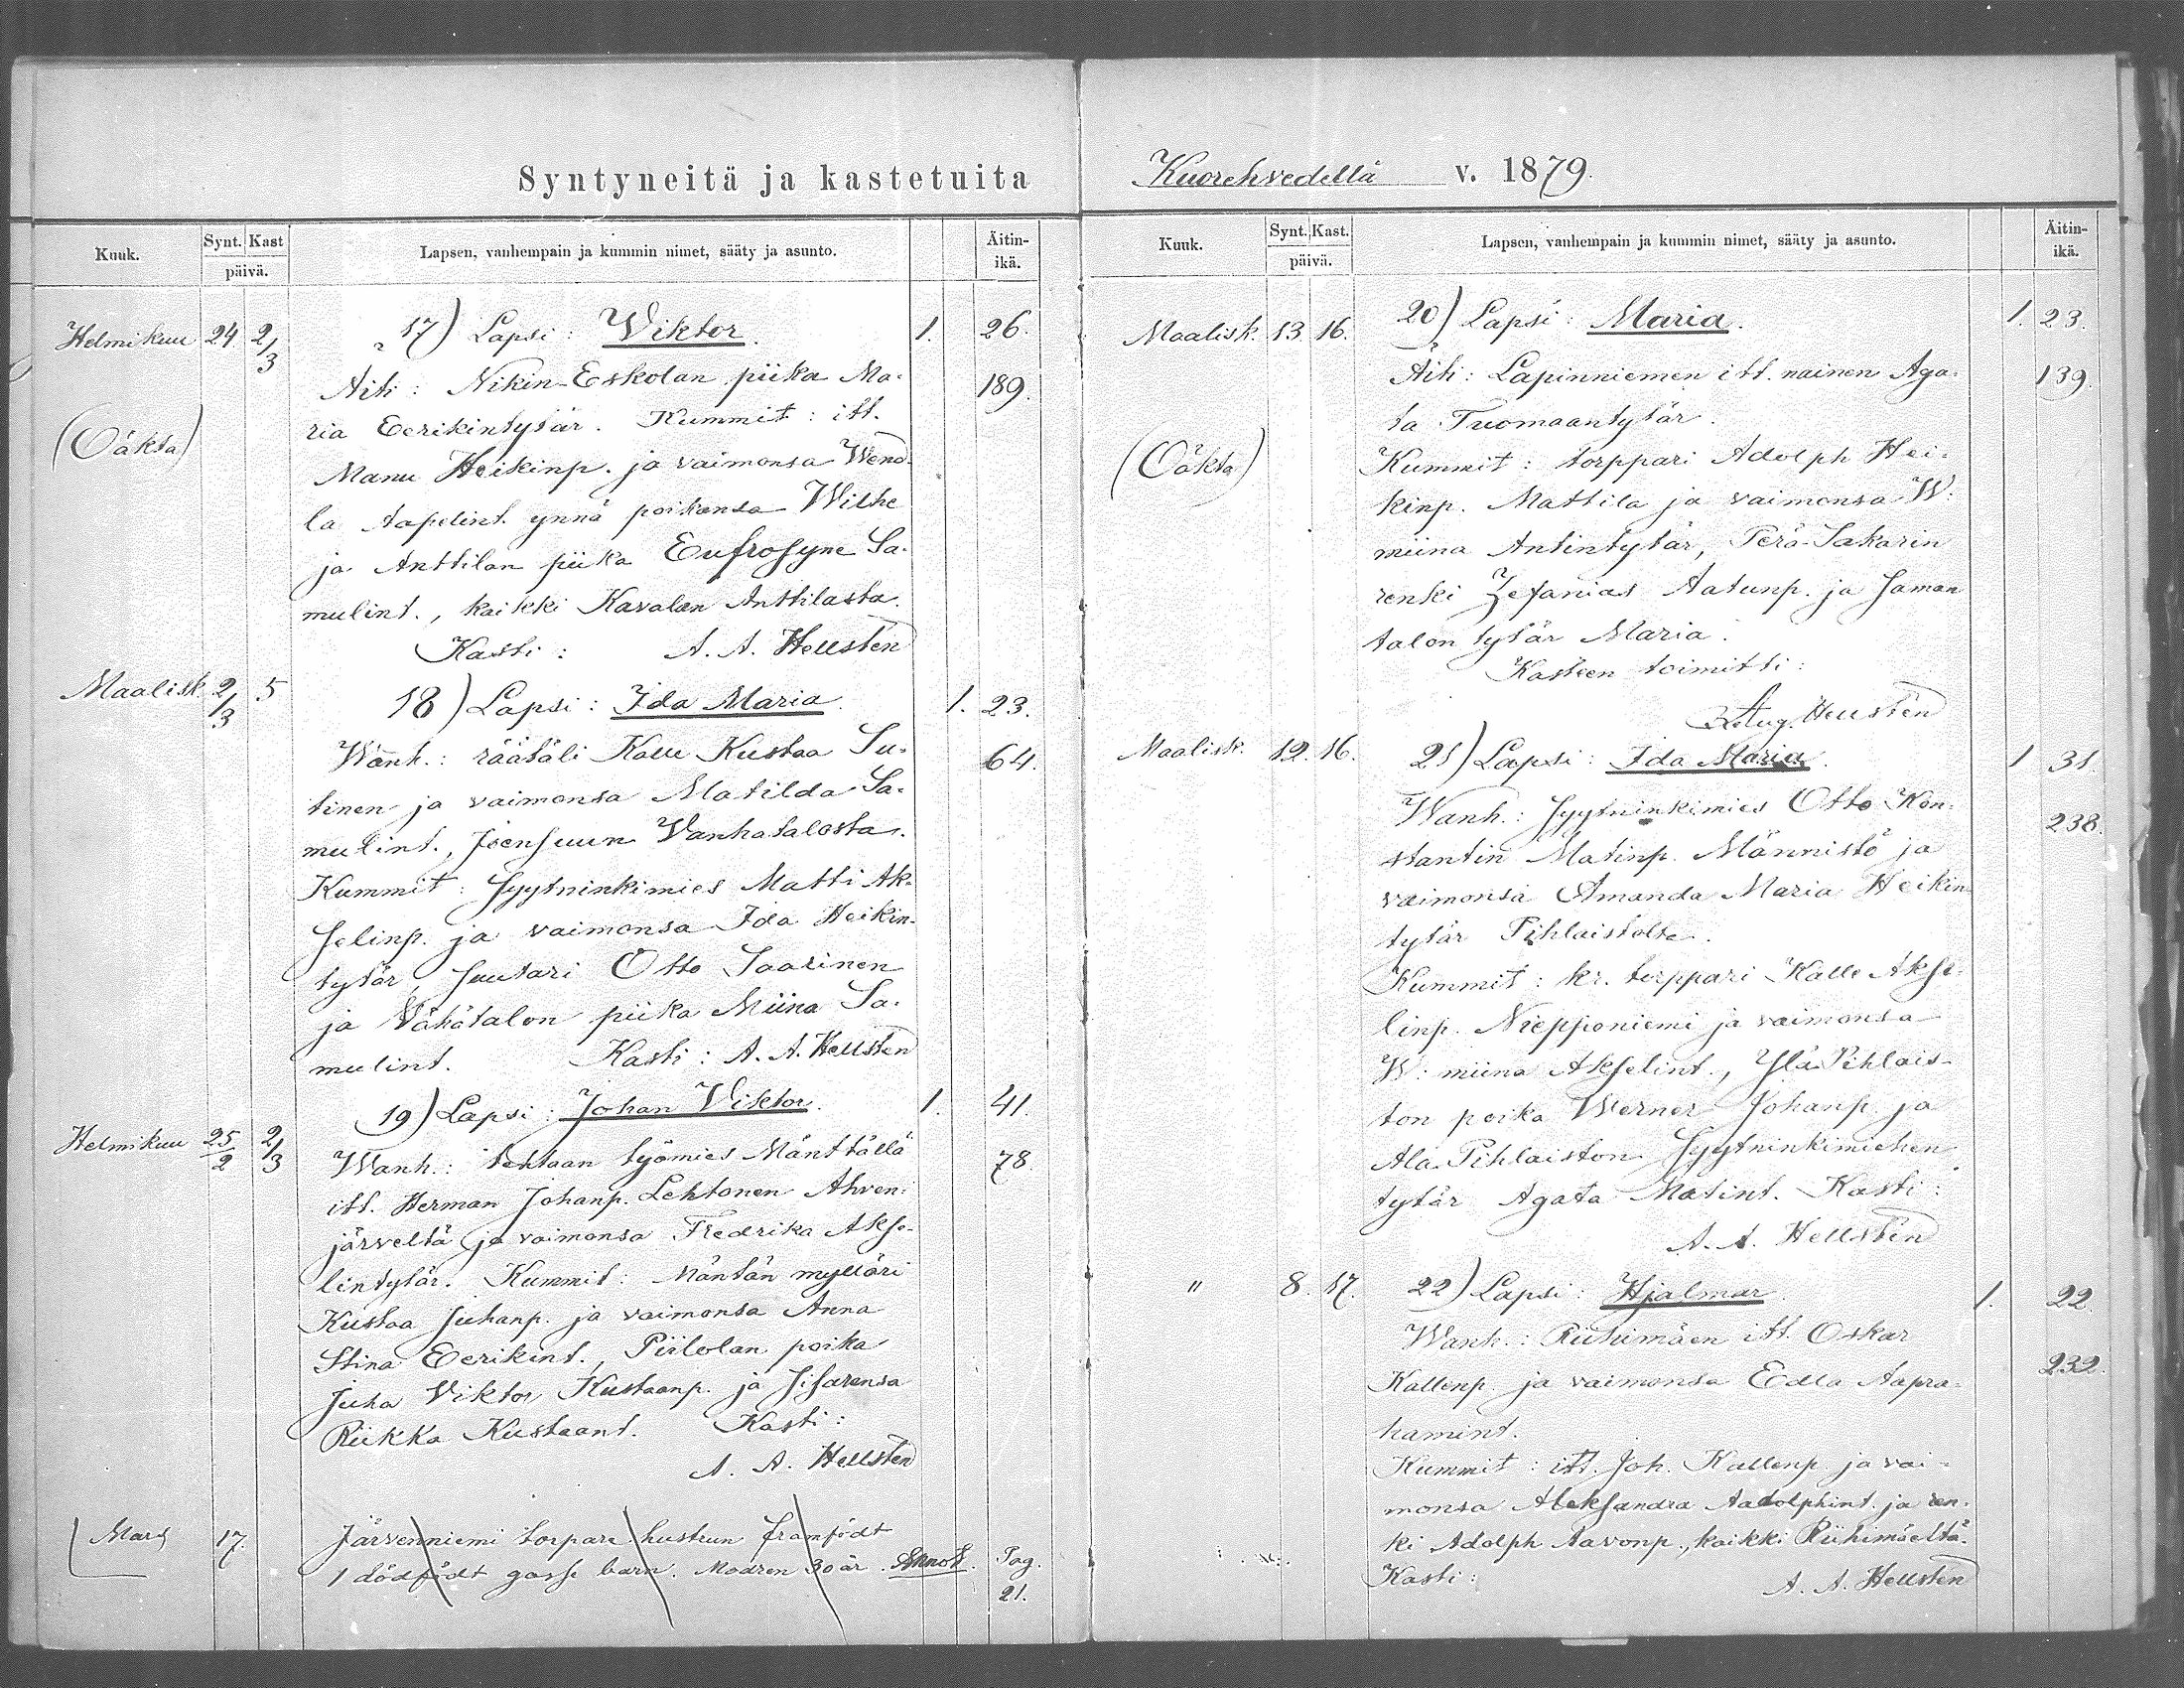 Syntyneitä ja kastetuita
Kuuk. Synt. Kast päivä. Lapsen, vanhempain ja kummin nimet, sääty ja asunto. Äitin-ikä.
Helmikuu 24 2/3 17) Lapsi: Wiktor. 1. 26.
Äiti: Nikin-Eskolan piika Ma- 189.
ria Eerikintytär. Kummit: itt.
(Oäkta)
Manu Heikinp. ja vaimonsa Wend-
la Aapelint. ynnä poikansa Wilhe
ja Anttilan piika Eufrosyne Sa-
mulint., kaikki Kavalan Anttilasta.
Kasti: A. A. Hellsten
Maalisk. 2/3 5 18) Lapsi: Ida Maria. 1. 23.
Wanh.: räätäli Kalle Kustaa Su- 64.
tinen ja vaimonsa Matilda Sa-
mulint., Joensuun Vanhatalosta.
Kummit: syytninkimies Matti Ak-
selinp. ja vaimonsa Ida Heikin-
tytär, suutari Otto Saarinen
ja Vähätalon piika Miina Sa-
mulint. Kasti: A. A. Hellsten
19) Lapsi: Johan Viktor. 1. 41.
Helmikuu 25/2 2/3 Wanh.: tehtaan työmies Mänttällä 78.
itt. Herman Johanp. Lehtonen Ahven-
järveltä ja vaimonsa Fredrika Akse-
lintytär. Kummit: Mäntän mylläri
Kustaa Juhanp. ja vaimonsa Anna
Stina Eerikint., Piilolan poika
Juha Viktor Kustaanp. ja sisarensa
Riikka Kustaant. Kasti:
A. A. Hellsten
Mars 17. Järvenniemi torpare hustrun framfödt
1 dödfödt gosse barn. Modren 30 år. Annot. Pag.
21.
Kuorehvedellä v. 1879.
Kuuk. Synt. Kast. päivä. Lapsen, vanhempain ja kummin nimet, sääty ja asunto. Äitin-ikä.
Maalisk. 13. 16. 20) Lapsi: Maria. 1. 23.
Äiti: Lapinniemen itt. nainen Aga- 139.
ta Tuomaantytär.
(Oäkta)
Kummit: torppari Adolph Hei-
kinp. Mattila ja vaimonsa W:
miina Antintytär, Perä-Sakarin
renki Zefanias Aatunp. ja saman
talon tytär Maria.
Kasteen toimitti:
Aug. Hellsten
Maalisk. 12. 16. 21) Lapsi: Ida Maria. 1 31.
Wanh.: syytninkimies Otto Kon- 238.
stantin Matinp. Männistö ja
vaimonsa Amanda Maria Heikin
tytär Pihlaistolta.
Kummit: kr. torppari Kalle Akse-
linp. Niepponiemi ja vaimonsa
W: miina Akselint., Ylä-Pihlais-
ton poika Werner Johanp. ja
Ala-Pihlaiston syytninkimiehen
tytär Agata Matint. Kasti:
A. A. Hellsten
" 8. 17. 22) Lapsi: Hjalmar. 1. 22.
Wanh.: Riihimäen itt. Oskar
Kallenp. ja vaimonsa Edla Aapra- 232.
hamint.
Kummit: itt. Joh. Kallenp. ja vai-
monsa Aleksandra Aadolphint. ja ren-
ki Adolph Aavonp., kaikki Riihimäeltä.
Kasti: A. A. Hellsten